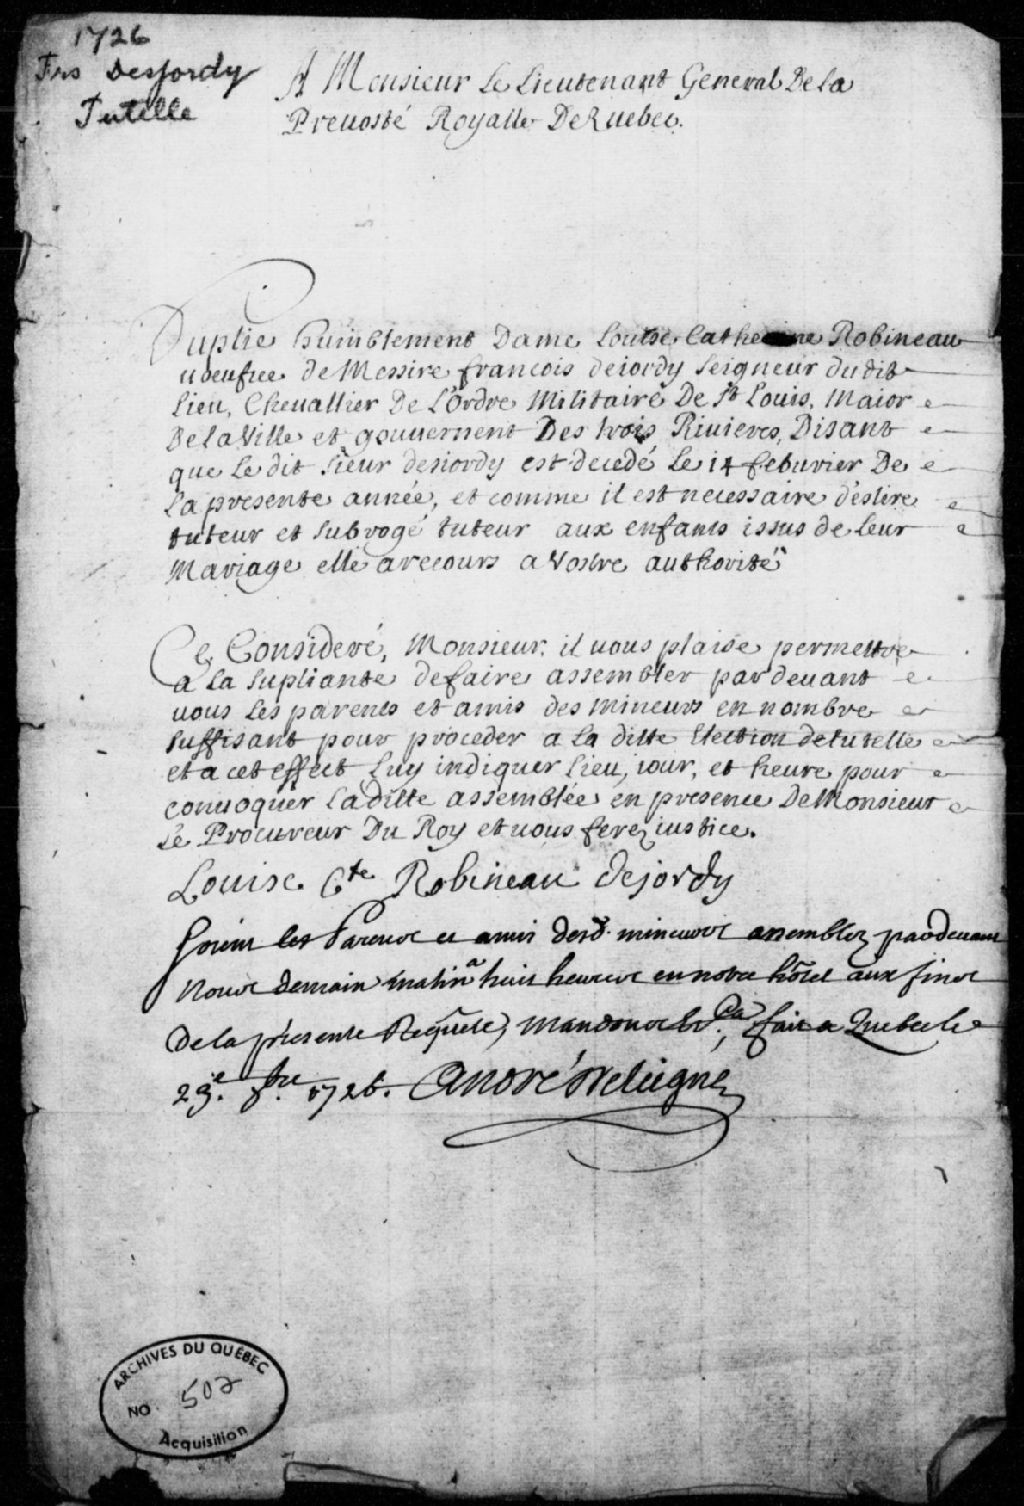 1726
Frs Desjordy
Tutelle
A Monsieur Le Lieutenant General De la
Prevosté Royalle De Quebec.
Suplie humblement Dame Louise Catherine Robineau
ueufue de Messire francois dejordy Seigneur dudit
lieu, Cheuallier De L'Ordre Militaire De St Louis, Maior
De la Ville et gouuernent Des trois Riuieres, Disant
que Le dit sieur desiordy est decedé Le 14 feburier De
La presente année, et comme il est necessaire d'eslire
tuteur et subrogé tuteur aux enfans issus de leur
Mariage elle a recours a Vostre authorité
Ce Consideré, Monsieur, il uous plaise permettre
a la supliante de faire assembler par deuant
uous Les parents et amis des mineurs en nombre
suffisant pour proceder a la ditte Election de tutelle
et a cet effect Luy indiquer Lieu, iour, et heure pour
conuoquer La ditte assemblée en presence De Monsieur
Le Procureur Du Roy et uous ferez iustice.
Louise Cte Robineau dejordy
Soient les Parents et amis desd. mineurs assemblez pardeuant
Nous demain matin a huit heures en notre hôtel aux fins
De la presente Requête, Mandons &ca, fait a Quebec le
29e. 8bre 1726. André Deleigne
ARCHIVES DU QUÉBEC
NO. 502
Acquisition